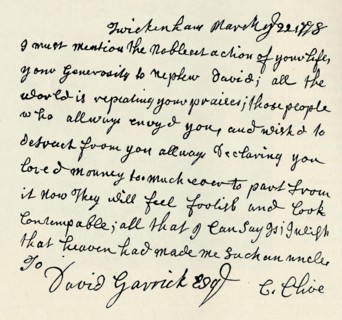 Twickenham March ye 22 1778
I must mention the Noblest action of your life,
your Generosity to Nephew David; all the
world is repeating your praises; those people
who allways envy'd you, and wish'd to
detract from you allways Declaring you
loved mouney too much ever to part from
it now They will feel foolish and look
Contempable; all that I Can Say Is; I wish
that heaven had made me Such an uncle
To
David Garrick Esqr C. Clive